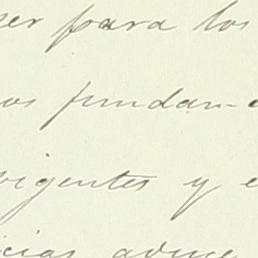 ser para los
os fundam-
vigentes y e
icias aduc